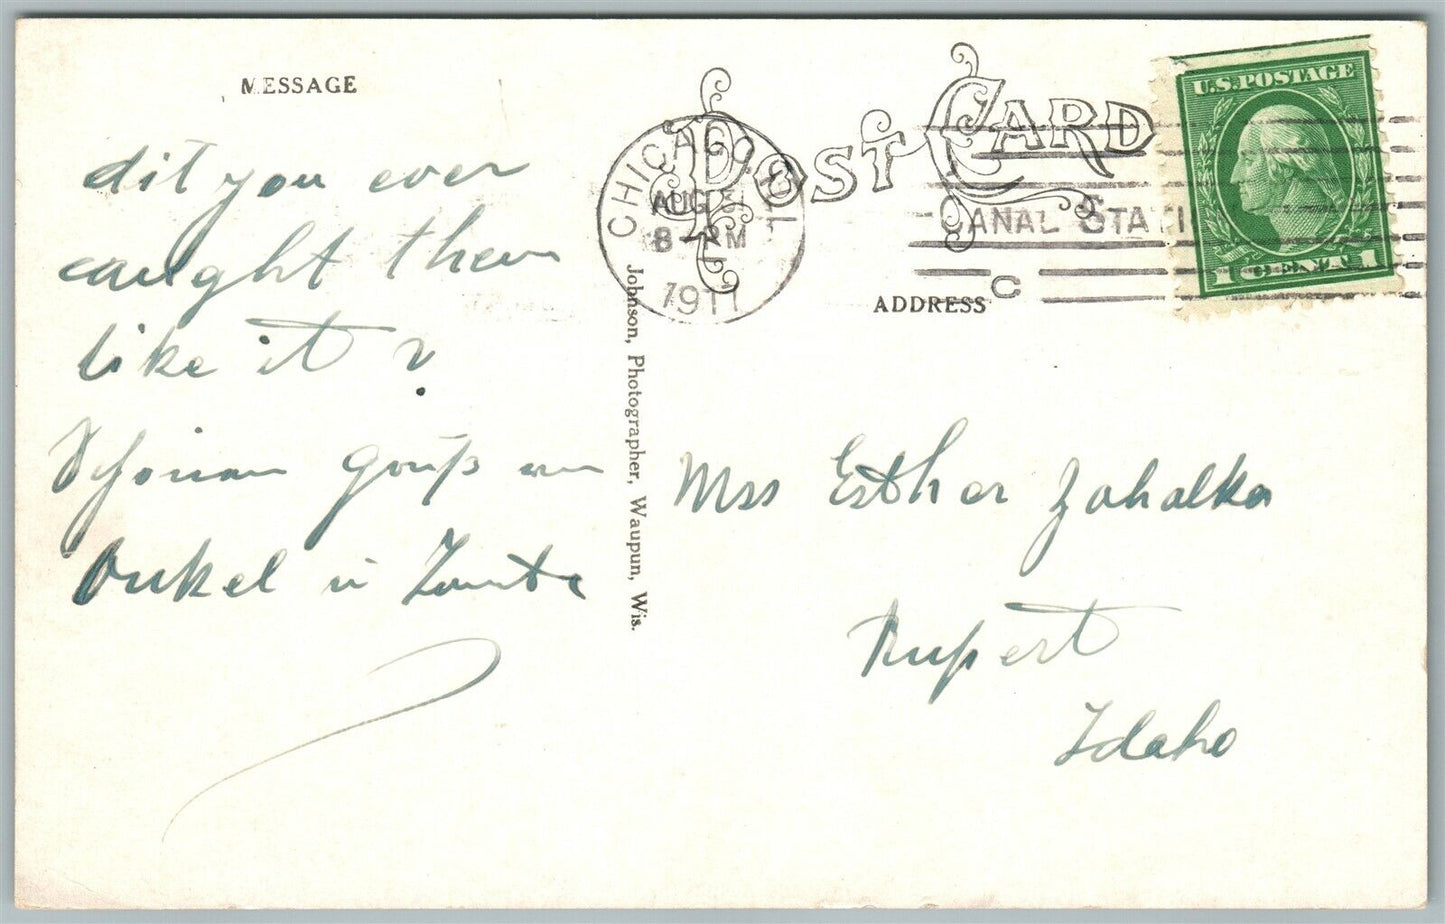 MESSAGE
dit you ever
caught them
like it ?
Schönen gruß von
Onkel u Tante
Johnson, Photographer, Waupun, Wis.
POST CARD
CHICAGO, ILL
AUG 31
8 PM
1911
CANAL STATION
C
U.S. POSTAGE
1 CENT 1
ADDRESS
Mss Esther Zahalka
Rupert
Idaho